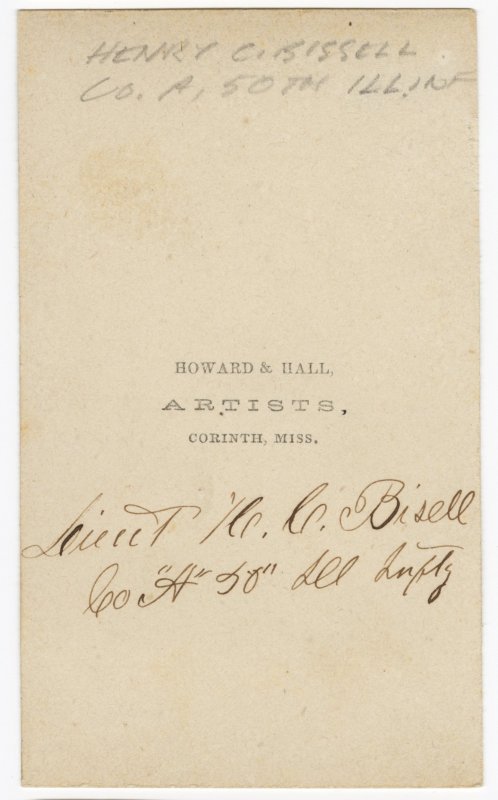 HENRY C. BISSELL
Co. A, 50TH ILL. INF
HOWARD & HALL,
ARTISTS,
CORINTH, MISS.
Lieut H. C. Bisell
Co "A" 50" Ill Infty